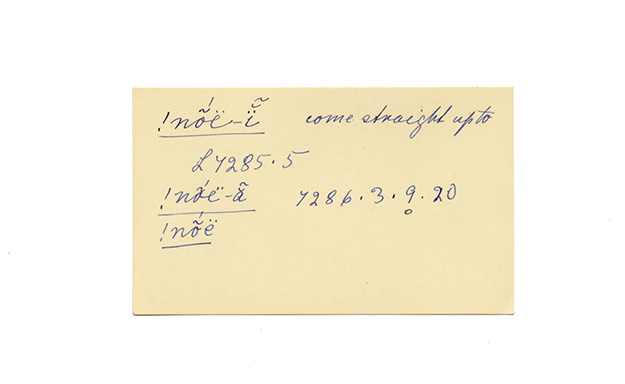 !nṍë-ĩ̈ come straight up to
L 7285.5
!nṍë-ã 7286.3.9.20
!nṍë